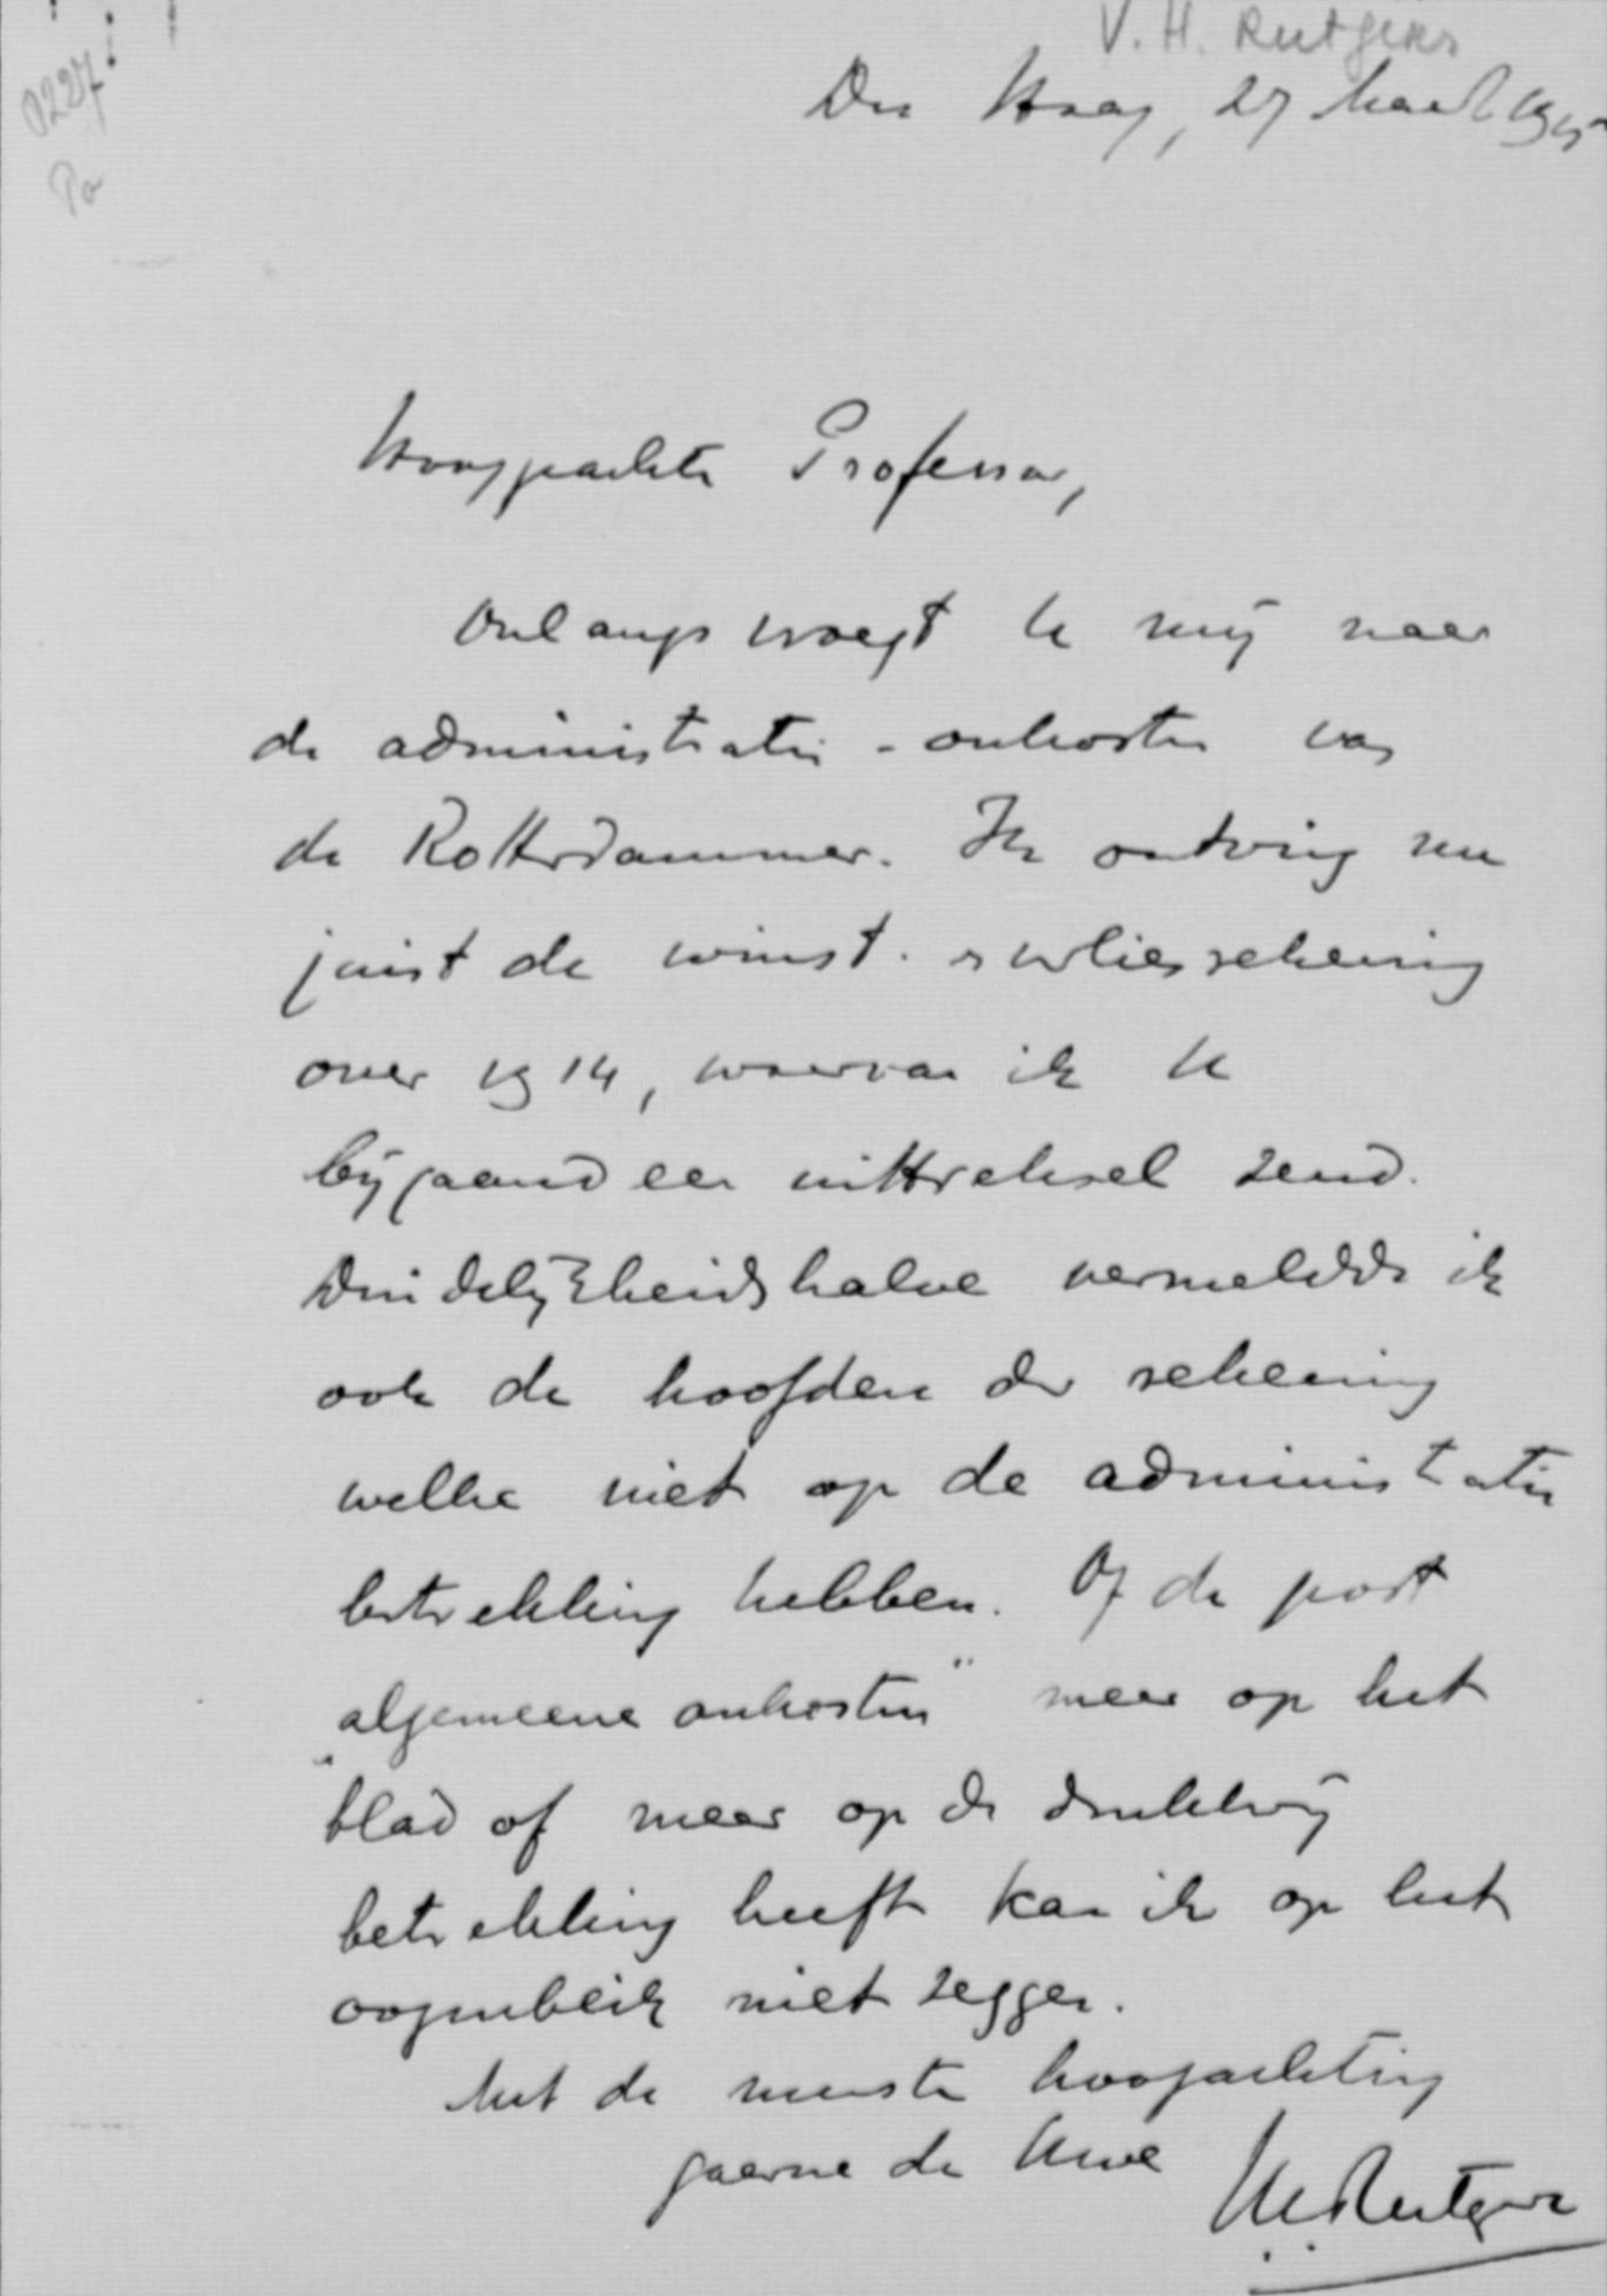 V. H. Rutgers
0227
Po
Den Haag, 27 Maart 1915
Hooggeachte Professor,
Onlangs vroegt U mij naar
de administratie-onkosten van
de Rotterdammer. Ik ontving nu
juist de winst- en verliesrekening
over 1914, waarvan ik U
bijgaand een uittreksel zend.
Duidelijkheidshalve vermeldde ik
ook de hoofden der rekening
welke niet op de administratie
betrekking hebben. Of de post
„algemeene onkosten" meer op het
blad of meer op de drukkerij
betrekking heeft kan ik op het
oogenblik niet zeggen.
Met de meeste hoogachting
gaarne de Uwe
VHRutgers